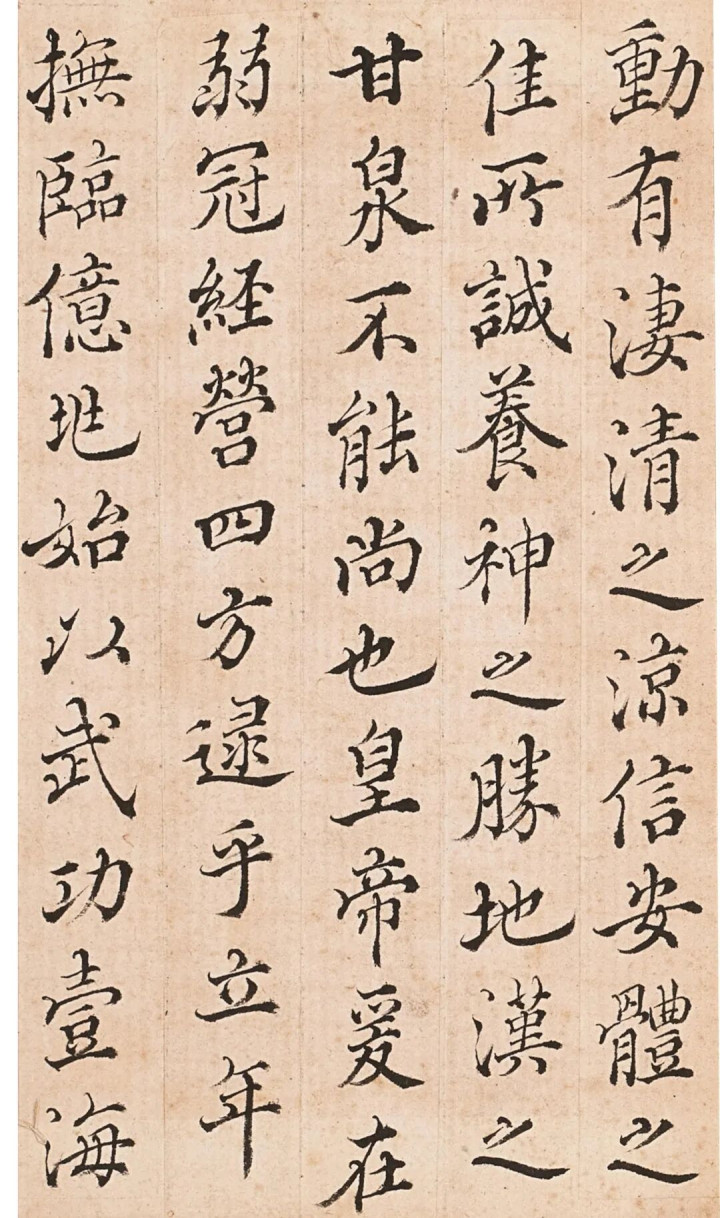 動有淒清之涼信安體之
佳所誠養神之勝地漢之
甘泉不能尚也皇帝爰在
弱冠経營四方逯乎立年
撫臨億兆始以武功壹海